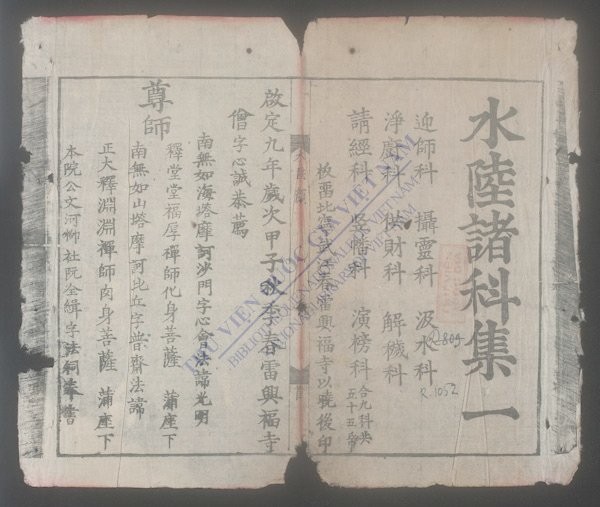 水陸諸科集一
迎師科 攝靈科 汲水科
淨廚科 供財科 解穢科
請經科 竪幡科 演榜科 合九科共
五十五
板畱北 武 春雷興福寺以曉後印
啟定九年歲次甲子 季春雷興福寺
僧字心誠奉薦
南無如海塔摩訶沙門字心會法諱光明
釋堂堂福厚禪師化身菩薩 蒲座下
尊師
南無如山塔摩訶比丘字普齋法諱
正大釋淵淵禪師肉身菩薩 蒲座下
本院公文河柳社阮全緝字法 奉書
THƯ VIỆN QUỐC GIA VIỆT NAM
R 809
R 1052